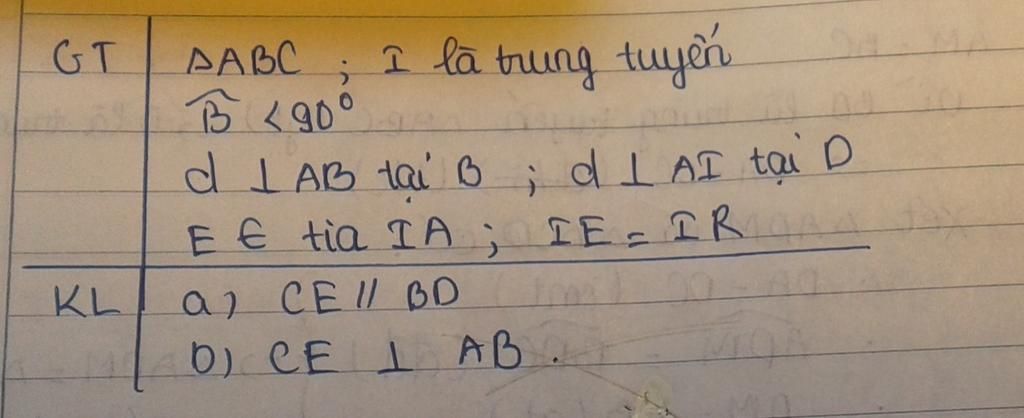 GT ΔABC ; I là trung tuyến
B̂ < 90°
d ⊥ AB tại B ; d ⊥ AI tại D
E ∈ tia IA ; IE = IR
KL a) CE // BD
b) CE ⊥ AB.